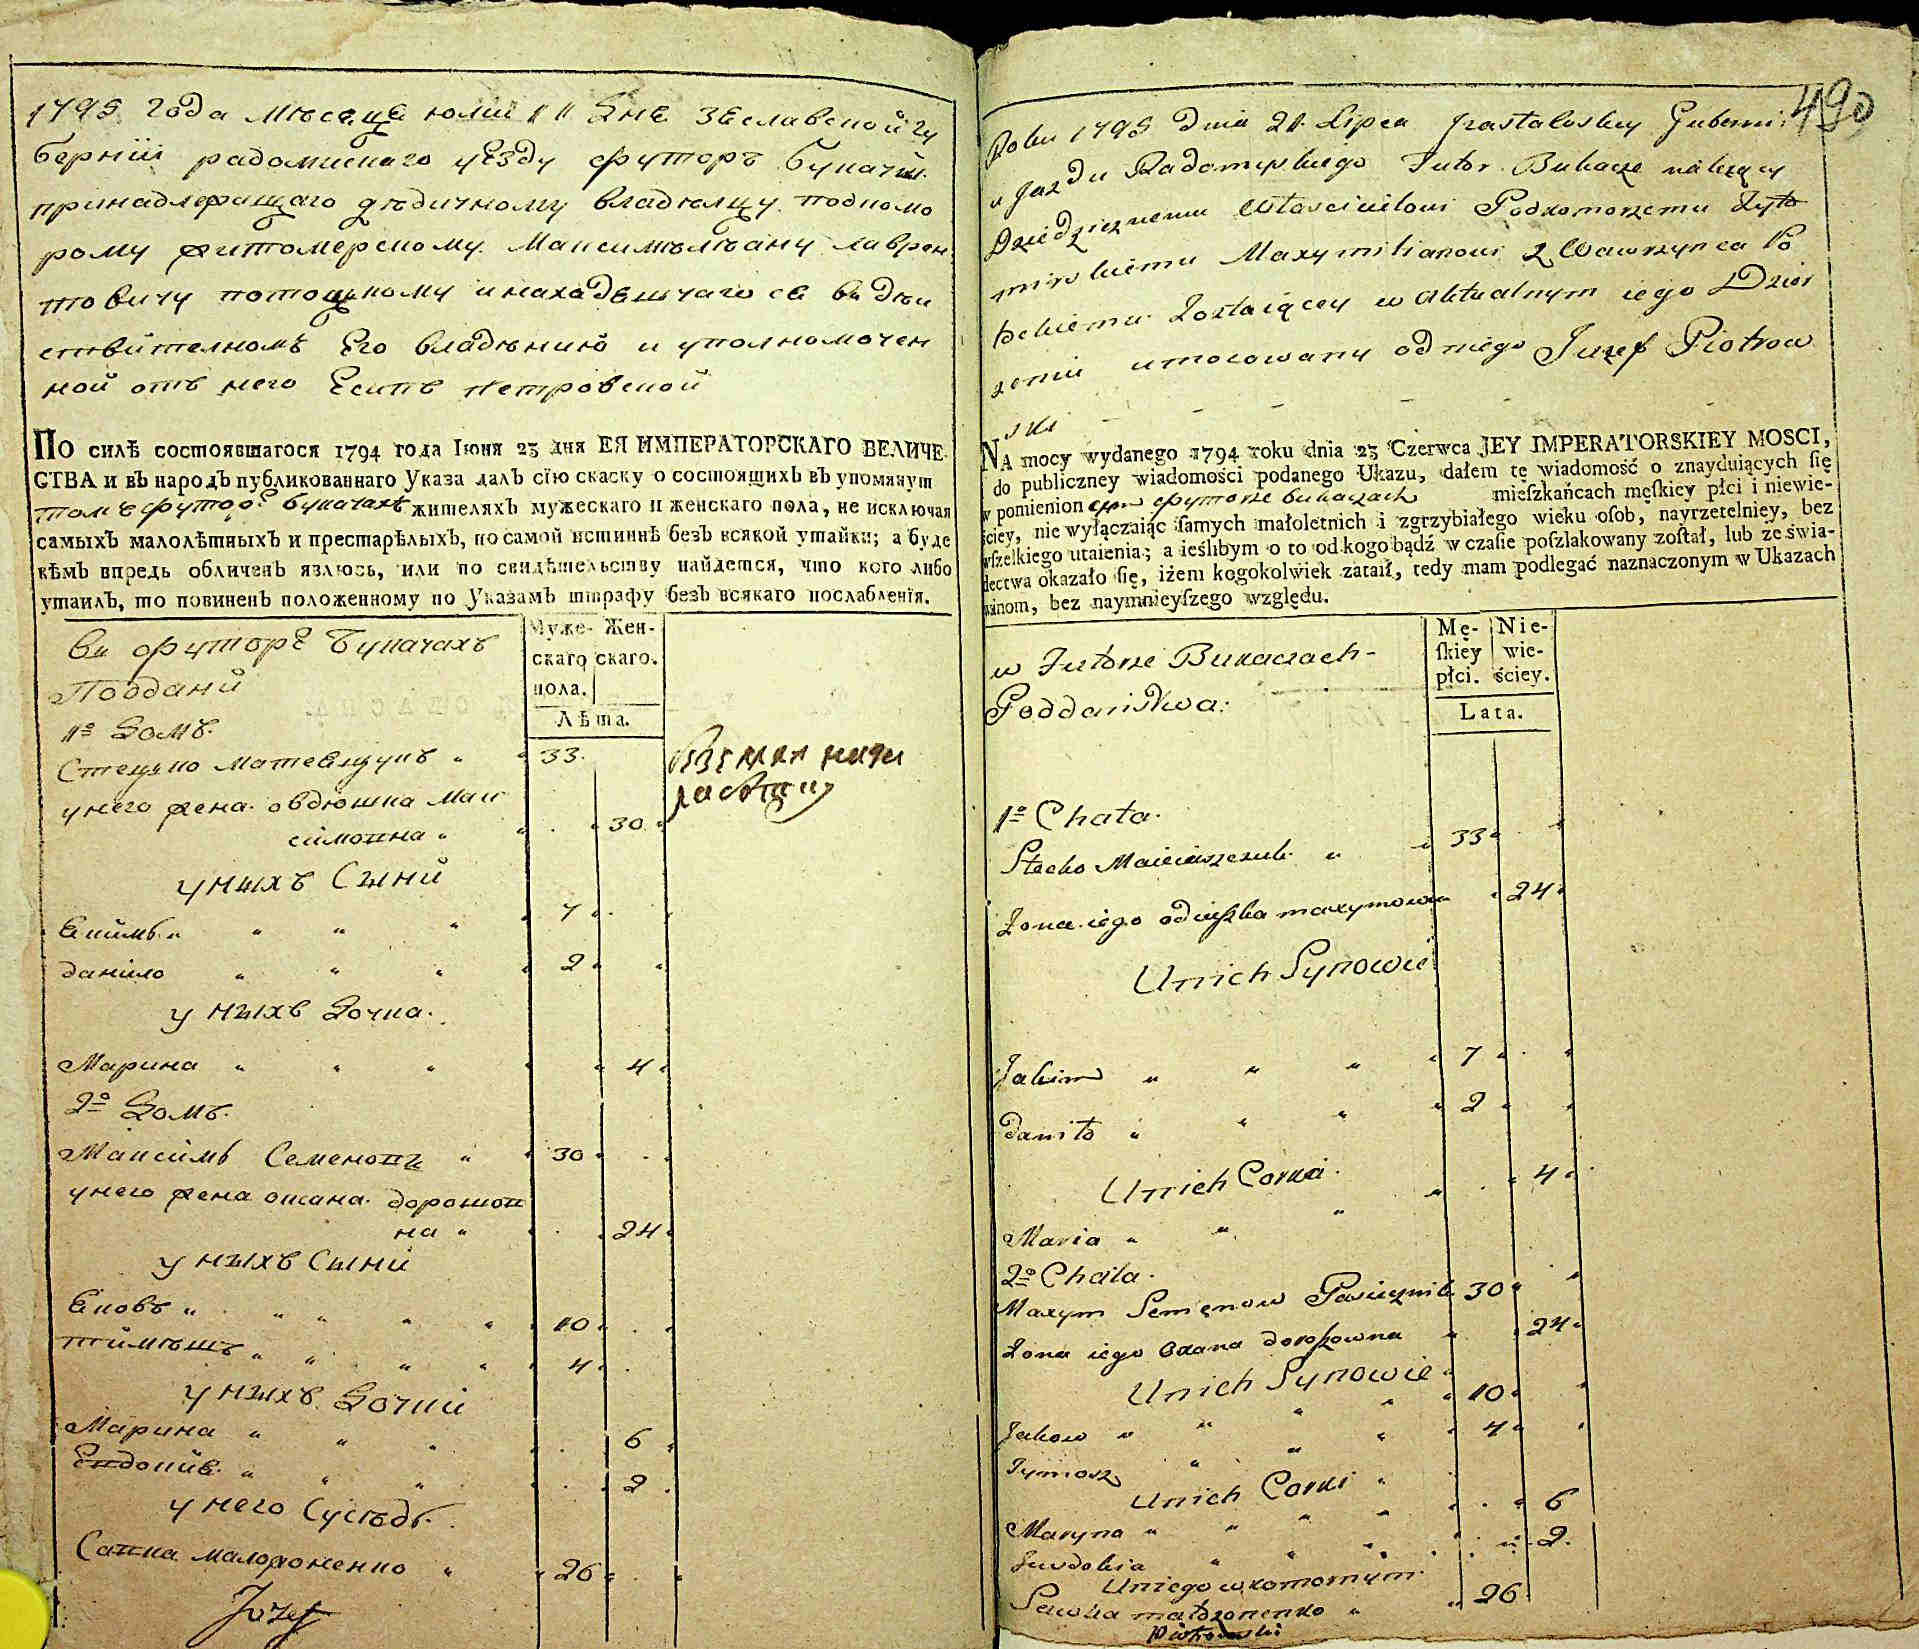 1795 года мѣсеце юлии 11 дне Зеславской гу
бернии радомиского уезду футоръ Букачи
принадлежащаго дѣдичному владѣлцу подкомо
рому житомерскому Максимѣлѣану лаврен
товичу потоцъкому инаходещагосе въ дѣи
ствителномъ Его владѣнию и уполномочен
ной отъ него Есипъ петровской
ПО силѣ состоявшагося 1794 года Іюня 23 дня ЕЯ ИМПЕРАТОРСКАГО ВЕЛИЧЕ-
СТВА и въ народъ публикованнаго Указа далъ сію скаску о состоящихъ въ упомянут
томъ футорѣ букачахъ жителяхъ мужескаго и женскаго пола, не исключая
самыхъ малолѣтныхъ и престарѣлыхъ, по самой истиннѣ безъ всякой утайки; а буде
кѣмъ впредь обличенъ явлюсь, или по свидѣтельству найдется, что кого либо
утаилъ, то повиненъ положенному по Указамъ штрафу безъ всякаго послабленія.
въ футорѣ Букачахъ
Поддани
Муже- Жен-
скаго скаго.
пола.
Лѣта.
1º Домъ.
Стецько матевщукъ 33.
унего жена овдюшка мак
симовна 30
у ныхъ Сыни
Екимъ 7
данило 2
у ныхъ Дочка.
Марина 4
2º Домъ.
Максимъ Семеновъ 30
унего жена оксана дорошов
на 24
у ныхъ Сыни
Ековъ 10
тимѣшъ 4
у ныхъ Дочки
Марина 6
Евдокиѣ 2
у него Сусѣдъ.
Савка малжоненко 26
Józef
490
Roku 1795 dnia 21 Lipca Izasławskey Gubernii
ujazdu Radomyskiego Futor Bukacze należący
Dziedzicznemu Właścicielowi Podkomorzemu Żyto
mirskiemu Maxymilianowi z Wawrzynca Po
tockiemu Zostaiącey w aktualnym iego Dzier
żeniu umocowany od niego Juzef Piotrow
ski
NA mocy wydanego 1794 roku dnia 23 Czerwca JEY IMPERATORSKIEY MOSCI,
do publiczney wiadomości podanego Ukazu, dałem tę wiadomość o znayduiących ſię
w pomienionym futorze bukaczach mieſzkańcach męſkiey płci i niewie-
ściey, nie wyłączaiąc ſamych małoletnich i zgrzybiałego wieku oſob, nayrzetelniey, bez
wſzelkiego utaienia; a ieślibym o to od kogo bądź w czaſie poſzlakowany zoſtał, lub ze świa-
dectwa okazało ſię, iżem kogokolwiek zataił, tedy mam podlegać naznaczonym w Ukazach
winom, bez naymnieyſzego względu.
w Futorze Bukaczach
Poddaństwa:
Mę- Nie-
ſkiey wie-
płci. ściey.
Lata.
1º Chata.
Stecko Maciaszczuk 33
Żona iego odiuszka maxymowna 24
Unich Synowie
Jakim 7
Daniło 2
Unich Corka
Maria 4
2º Chata.
Maxym Semenow Pasiecznik 30
Żona iego Oxana doroszowna 24
Unich Synowie
Jakow 10
Tymosz 4
Unich Corki
Maryna 6
Juwdokia 2
Uniego w komornym
Sawka małżonenko 26
Piotrowski